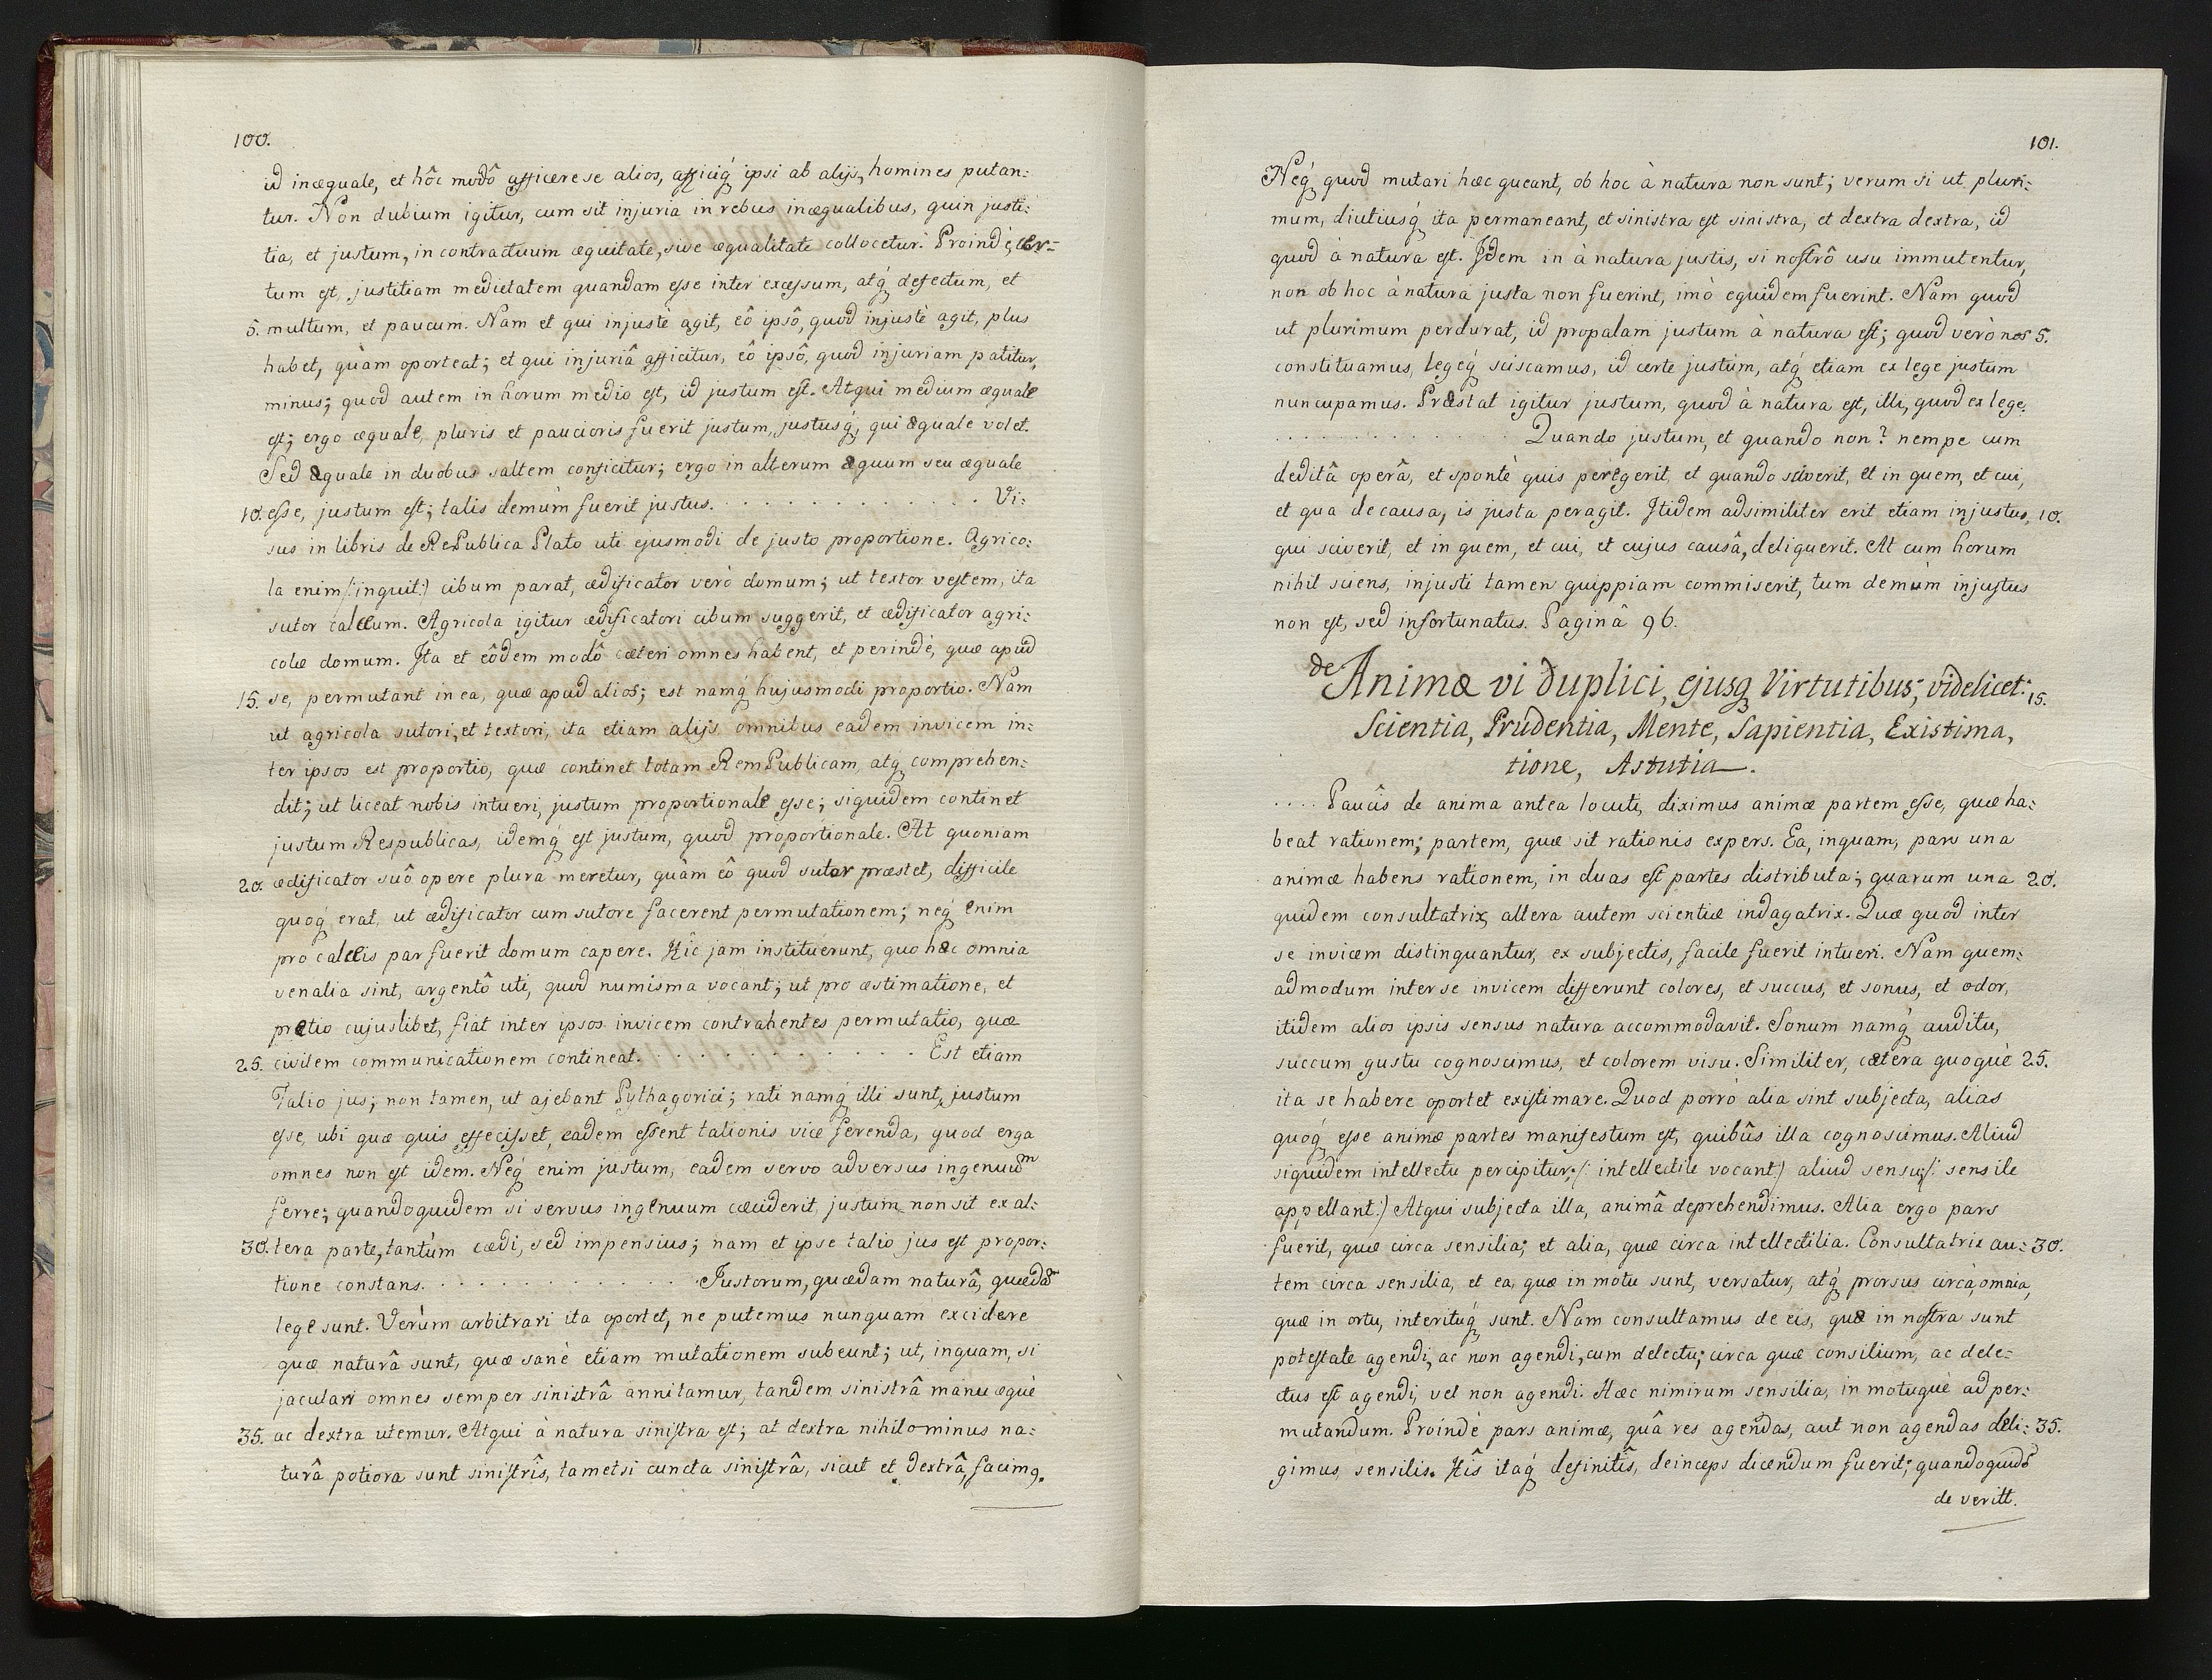 100.
id inæquale, et hôc modô afficere se alios, afficiq́ ipsi ab alijs, homines putan:
tur. Non dubium igitur, cum sit injuria in rebus inæqualibus, quin justi:
tia, et justum, in contractuum æquitate, sive æqualitate collocetur. Proindè, cer-
tum est, justitiam medietatem quandam esse inter excessum, atq́ defectum, et
5. multum, et paucum. Nam et qui injustè agit, eô ipsô, quod injustè agit, plus
habet, quàm oporteat; et qui injuriâ afficitur, eô ipsô, quod injuriam patitur,
minus; quod autem in horum medio est, id justum est. Atqui medium æquale
est; ergo æquale, pluris et paucioris fuerit justum, justusq́, qui æquale volet.
Sed æquale in duobus saltem conficitur; ergo in alterum æquum seu æquale
10. esse, justum est; talis demùm fuerit justus. . . . . . . . . . . . . . Vi:
sus in libris de RePublica Plato uti ejusmodi de justo proportione. Agrico:
la enim /:inquit:/ cibum parat, ædificator verò domum; ut textor vestem, ita
sutor calceum. Agricola igitur ædificatori cibum suggerit, et ædificator agri:
colæ domum. Ita et eôdem modô cæteri omnes habent, et perindè, quæ apud
15. se, permutant in ea, quæ apud alios; est namq́ hujusmodi proportio. Nam
ut agricola sutori, et textori, ita etiam alijs omnibus eadem invicem in:
ter ipsos est proportio, quæ continet totam RemPublicam, atq́ comprehen:
dit; ut liceat nobis intueri, justum proportionale esse; siquidem continet
justum Respublicas, idemq́ est justum, quod proportionale. At quoniam
20. ædificator suô opere plura meretur, quàm eô quod sutor præstet, difficile
quoq́ erat, ut ædificator cum sutore facerent permutationem; neq́ enim
pro calceis par fuerit domum capere. Hîc jam instituerunt, quo hæc omnia
venalia sint, argentô uti, quod numisma vocant; ut pro æstimatione, et
prætio cujuslibet, fiat inter ipsos invicem contrahentes permutatio, quæ
25. civilem communicationem contineat. . . . . . . . . . . . . . Est etiam
Talio jus; non tamen, ut ajebant Pythagorici; rati namq́ illi sunt, justum
esse, ubi quæ quis effecisset, eadem essent talionis vice ferenda, quod erga
omnes non est idem. Neq́ enim justum, eadem servo adversus ingenuum
ferre; quandoquidem si servus ingenuum cæciderit, justum non sit ex al:
30. tera parte, tantùm cædi, sed impensius; nam et ipse talio jus est propor:
tione constans. . . . . . . . . . . . . . Justorum, quædam naturâ, quædã
lege sunt. Verùm arbitrari ita oportet, ne putemus nunquam excidere
quæ naturâ sunt, quæ sanè etiam mutationem subeunt; ut, inquam, si
jaculari omnes semper sinistrâ annitamur, tandem sinistrâ manu æquè
35. ac dextra utemur. Atqui à natura sinistra est; at dextra nihilominus na:
turâ potiora sunt sinistrîs, tametsi cuncta sinistrâ, sicut et dextrâ, facimꝰ.
101.
Neq́ quod mutari hæc queant, ob hoc à natura non sunt; verum si ut pluri:
mum, diutiusq́ ita permaneant, et sinistra est sinistra, et dextra dextra, id
quod à natura est. Idem in à natura justis, si nostrô usu immutentur,
non ob hoc à natura justa non fuerint, imò equidem fuerint. Nam quod
ut plurimum perdurat, id propalam justum à natura est; quod verò nos 5.
constituamus, legeq́ sciscamus, id certe justum, atq́ etiam ex lege justum
nuncupamus. Præstat igitur justum, quod à natura est, illi, quod ex lege.
. . . . . . . . . . . . . . Quando justum, et quando non? nempe cum
deditâ operâ, et spontè quis peregerit, et quando sciverit, et in quem, et cui,
et qua de causa, is justa peragit. Itidem adsimiliter erit etiam injustus, 10.
qui sciverit, et in quem, et cui, et cujus causâ, deliquerit. At cum horum
nihil sciens, injusti tamen quippiam commiserit, tum demùm injustus
non est, sed infortunatus. Paginâ 96.
de Animæ vi duplici, ejusq́ Virtutibus; videlicet: 15.
Scientia, Prudentia, Mente, Sapientia, Existima,
tione, Astutia.
. . . . Paucîs de anima antea locuti, diximus animæ partem esse, quæ ha:
beat rationem; partem, quæ sit rationis expers. Ea, inquam, pars una
animæ habens rationem, in duas est partes distributa; quarum una 20.
quidem consultatrix, altera autem scientiæ indagatrix. Quæ quod inter
se invicem distinguantur, ex subjectis, facile fuerit intueri. Nam quem:
admodum inter se invicem differunt colores, et succus, et sonus, et odor,
itidem alios ipsis sensus natura accommodavit. Sonum namq́ auditu,
succum gustu cognoscimus, et colorem visu. Similiter, cætera quoquè 25.
ita se habere oportet existimare. Quod porrò alia sint subjecta, alias
quoq́ esse animæ partes manifestum est, quibûs illa cognoscimus. Aliud
siquidem intellectu percipitur; /: intellectile vocant:/ aliud sensu; /: sensile
appellant:/ Atqui subjecta illa, animâ deprehendimus. Alia ergo pars
fuerit, quæ circa sensilia; et alia, quæ circa intellectilia. Consultatrix au: 30.
tem circa sensilia, et ea, quæ in motu sunt, versatur, atq́ prorsus circà omnia,
quæ in ortu, interituq́ sunt. Nam consultamus de eis, quæ in nostra sunt
potestate agendi, ac non agendi, cum delectu; circa quæ consilium, ac dele:
ctus est agendi, vel non agendi. Hæc nimirum sensilia, in motuquè ad per:
mutandum. Proindè pars animæ, quâ res agendas, aut non agendas deli: 35.
gimus, sensilis. Hîs itaq́ definitîs, deinceps dicendum fuerit; quandoquidẽ
de veritt.